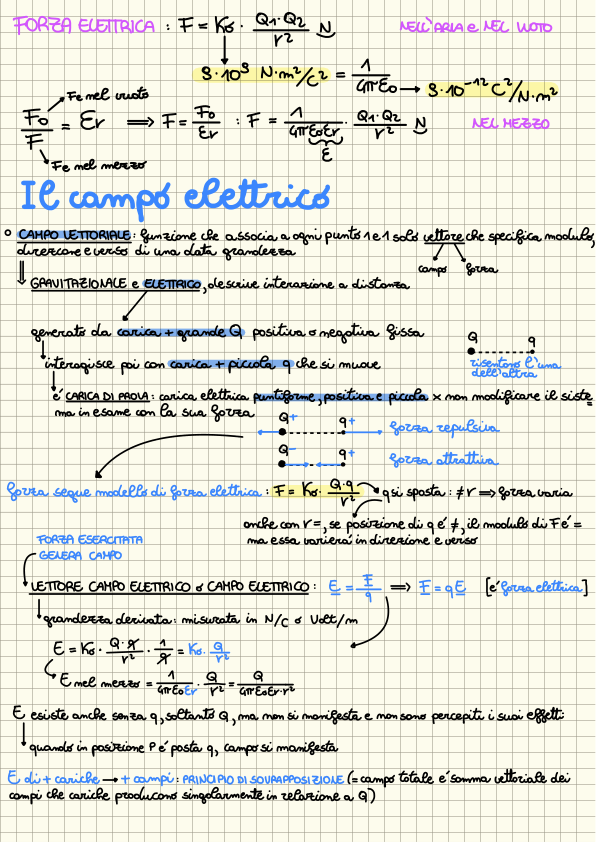 FORZA ELETTRICA : F = K₀ · Q₁·Q₂/r² N NELL'ARIA e NEL VUOTO
9·10⁹ N·m²/C² = 1/4πε₀ → 9·10⁻¹² C²/N·m²
Fe nel vuoto
F₀/F = εr ⟹ F = F₀/εr : F = 1/4πε₀εr · Q₁·Q₂/r² N NEL MEZZO
ε
Fe nel mezzo
Il campo elettrico
CAMPO VETTORIALE: funzione che associa a ogni punto 1 e 1 solo vettore che specifica modulo,
direzione e verso di una data grandezza
campo forza
GRAVITAZIONALE e ELETTRICO, descrive interazione a distanza
generato da carica + grande Q positiva o negativa fissa
Q q
interagisce poi con carica + piccola q che si muove
risentono l'una
dell'altra
è CARICA DI PROVA: carica elettrica puntiforme, positiva e piccola x non modificare il siste
ma in esame con la sua forza
Q⁺ q⁺ forza repulsiva
Q⁻ q⁺ forza attrattiva
forza segue modello di forza elettrica : F = K₀ · Q·q/r² → q si sposta : ≠ r ⟹ forza varia
anche con r =, se posizione di q é ≠, il modulo di F é =
ma essa varierà in direzione e verso
FORZA ESERCITATA
GENERA CAMPO
VETTORE CAMPO ELETTRICO o CAMPO ELETTRICO : E = F/q ⟹ F = qE [é forza elettrica]
grandezza derivata: misurata in N/C o Volt/m
E = K₀ · Q·q/r² · 1/q = K₀ · Q/r²
E nel mezzo = 1/4πε₀εr · Q/r² = Q/4πε₀εr·r²
E esiste anche senza q, soltanto Q, ma non si manifesta e non sono percepiti i suoi effetti
quando in posizione P é posta q, campo si manifesta
E di + cariche → + campi : PRINCIPIO DI SOVRAPPOSIZIONE (= campo totale é somma vettoriale dei
campi che cariche producono singolarmente in relazione a Q)